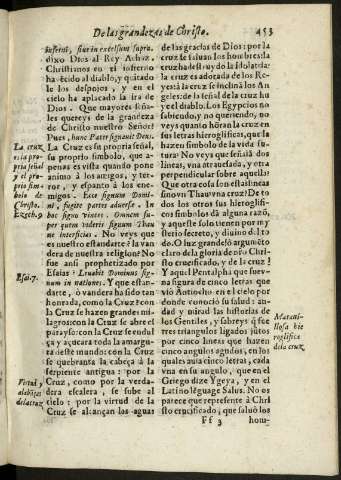 De las grandezas de Christo. 453
inferni, siue in excelsum supra,
dixo Dios al Rey Achaz.
Christianos en el infierno
ha
al diablo, y quitado
le los despojos, y en el
cielo ha aplacado la ira de
Dios. Que mayores señales
quereys de la grandeza
de Christo nuestro Señor?
Pues, hunc Pater signauit Deus.
La Cruz es su propria señal,
su proprio simbolo, que apenas
es vista quando pone
animo à los amigos, y terror,
y espanto à los enemigos.
Ecce signum Domini,
fugite partes aduersæ. In
hoc signo vinces. Omnem super
quem videritis signum Thau
ne interficias. No veys que
es nuestro estandarte? la vandera
de nuestra religion? No
fue ansi prophetizado por
Esaias? Leuabit Dominus signum
in nationes. Y que estandarte,
ò vandera ha sido tan
honrada, como la Cruz? con
la Cruz se hazen grandes milagros:
con la Cruz se abre el
parayso con la Cruz se endulça
y açucara toda la amargura
deste mundo: con la Cruz
se quebranta la cabeça à la
serpiente antigua: por la
Cruz, como por la verdadera
escalera, se sube al
cielo: por la virtud de la
Cruz se alcançan los aguas
La cruz
es la propria
señal
y el proprio
simbolo
de
Christo.
Ezech. 9
Esai. 7.
Virtud y
alabāças
de la cruz
de las gracias de Dios: por la
cruz se saluan los hombres: la
cruz ha destruydo la Idolatria:
la cruz es adorada de los Reyes:
à la cruz se inclinã los Angeles:
de la señal de la cruz huye
el diablo. Los Egipcios no
sabiendo, y no queriendo, no
veys quanto hõran la cruz en
sus letras hieroglificas, que la
hazen simbolo de la vida futura?
No veys que señalã dos
lineas, vna atrauesada, y otra
perpendicular sobre aquella?
Que otra cosa son estas lineas
sino vn Thau vna cruz? De todos
los otros sus hieroglificos
simbolos dã alguna razõ,
y aqueste solo tienen por mysterio
secreto, y diuino de l todo.
O luz grande! ò argumẽto
claro de la gloria de nr̃o Christo
crucificado, y de la cruz!
Y aquel Pentalpha que fue vna
figura de cinco letras que
viò Antiocho en el cielo por
donde conociò su salud: andad
y mirad las historias de
los Gentiles, y sabreys q̃ fue
tres triangulos ligados jũtos
por cinco lineas que hazen
cinco angulos agudos, en los
quales auia cinco letras, cada
vna en su angulo, que en el
Griego dize Ygeya, y en el
Latino lẽguage Salus. No es
parece que represente à Christo
crucificado, que saluò los
Marauillosa
hieroglifica
de la cruz
Ff 3 hom-